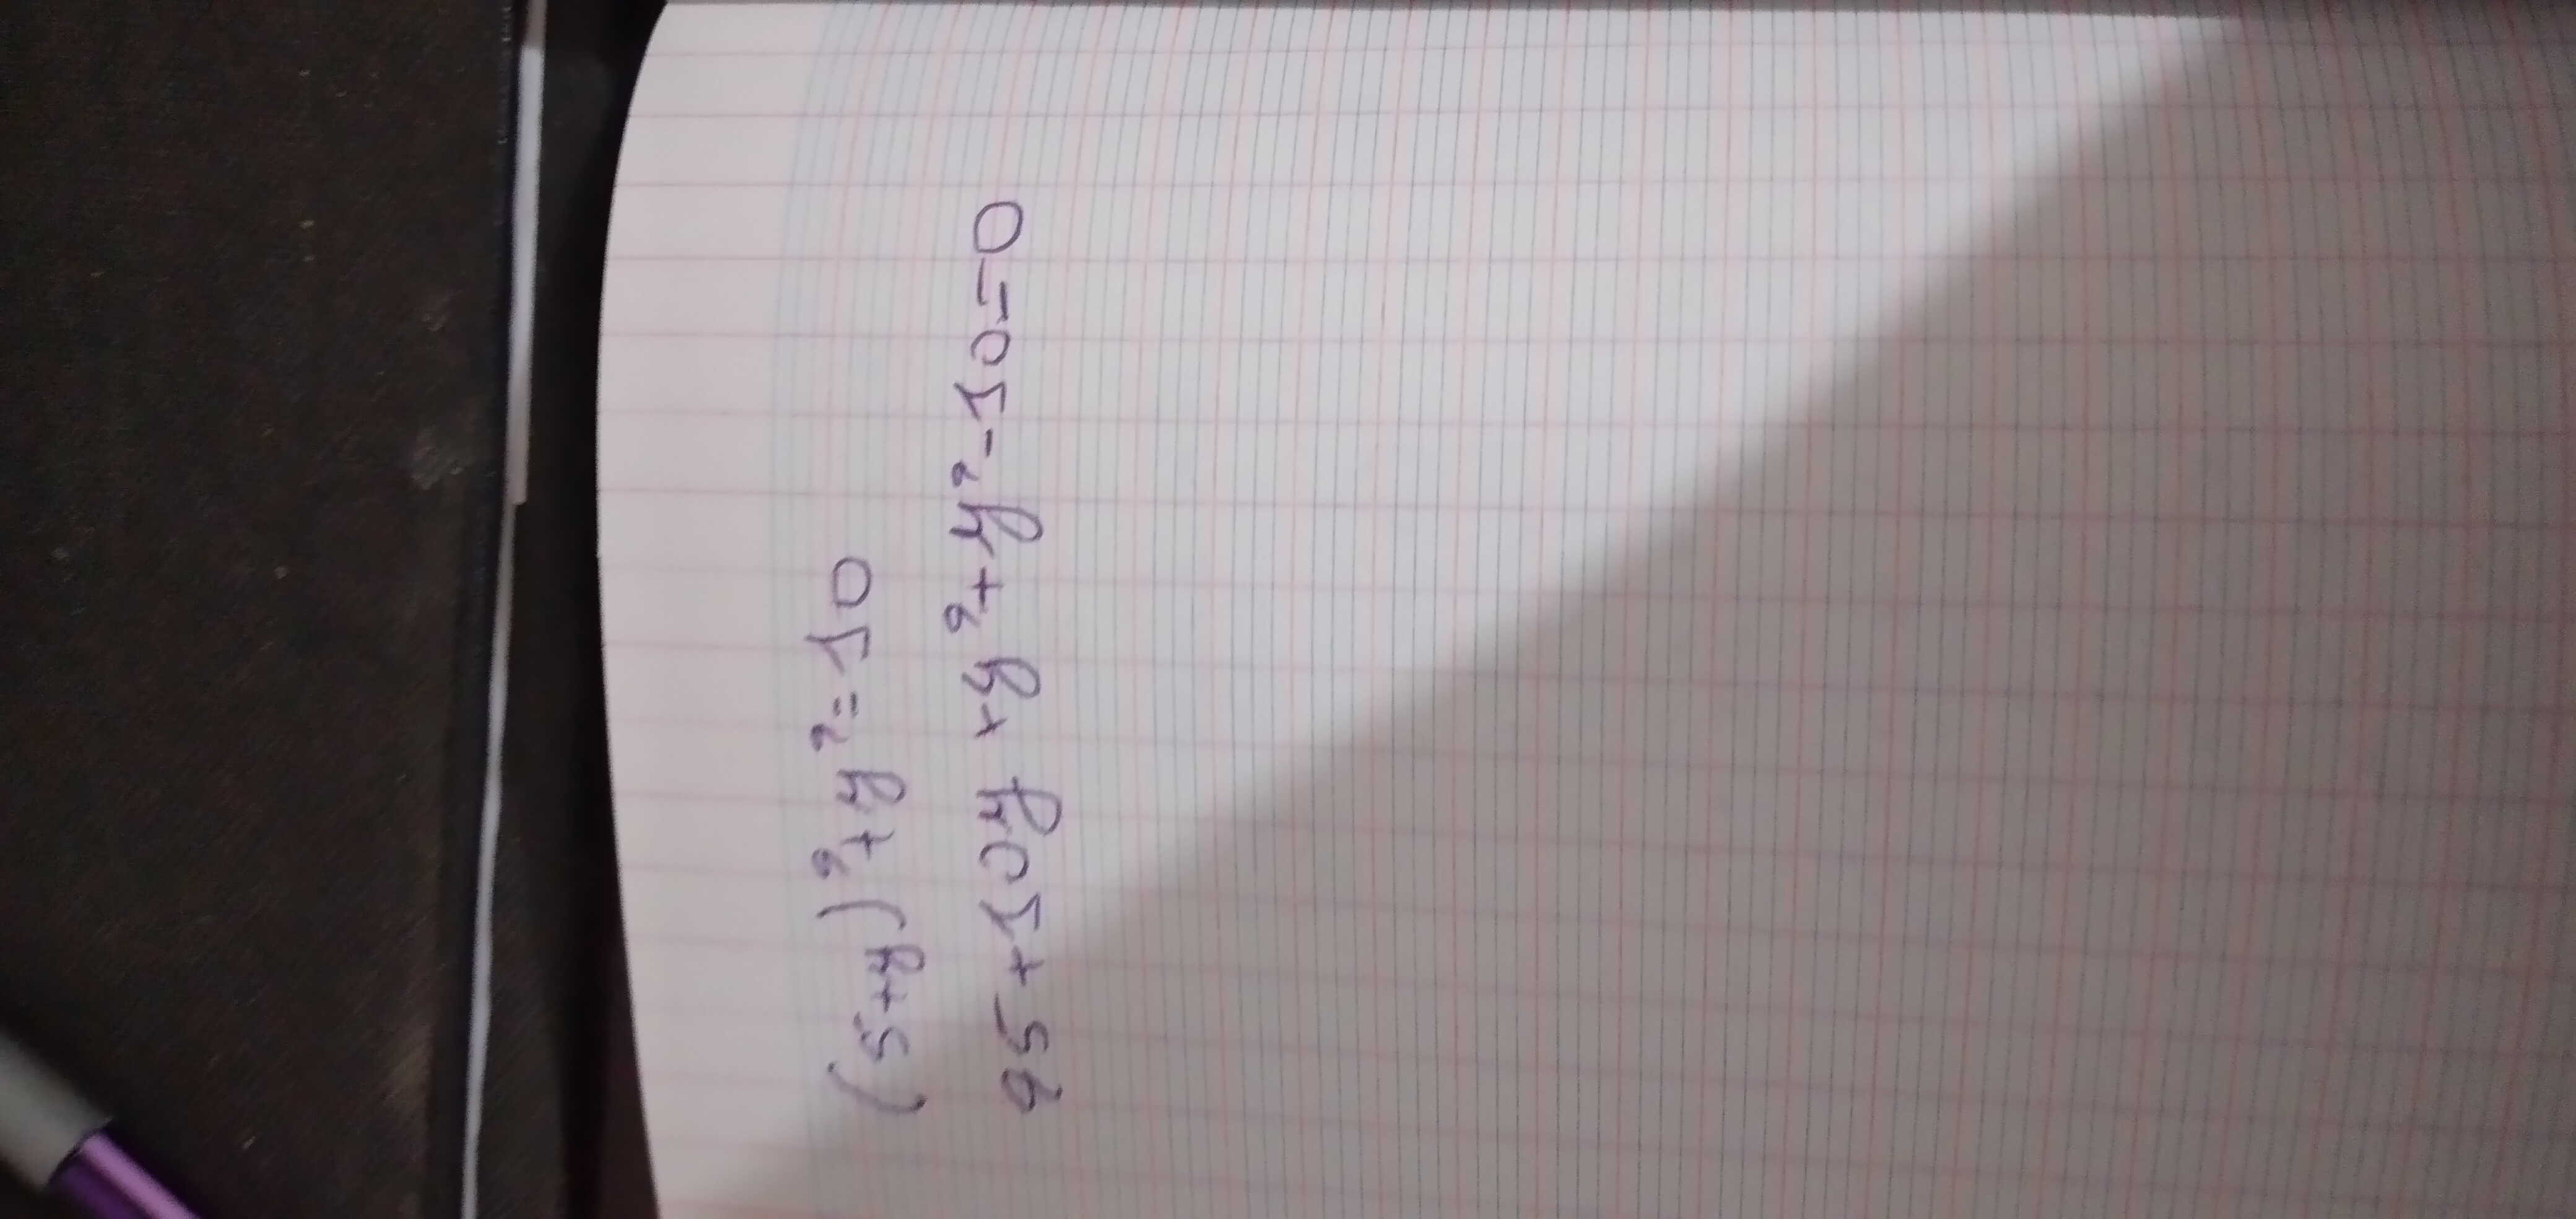 (5+y)²+y²=10
25+10y+y²+y²-10=0